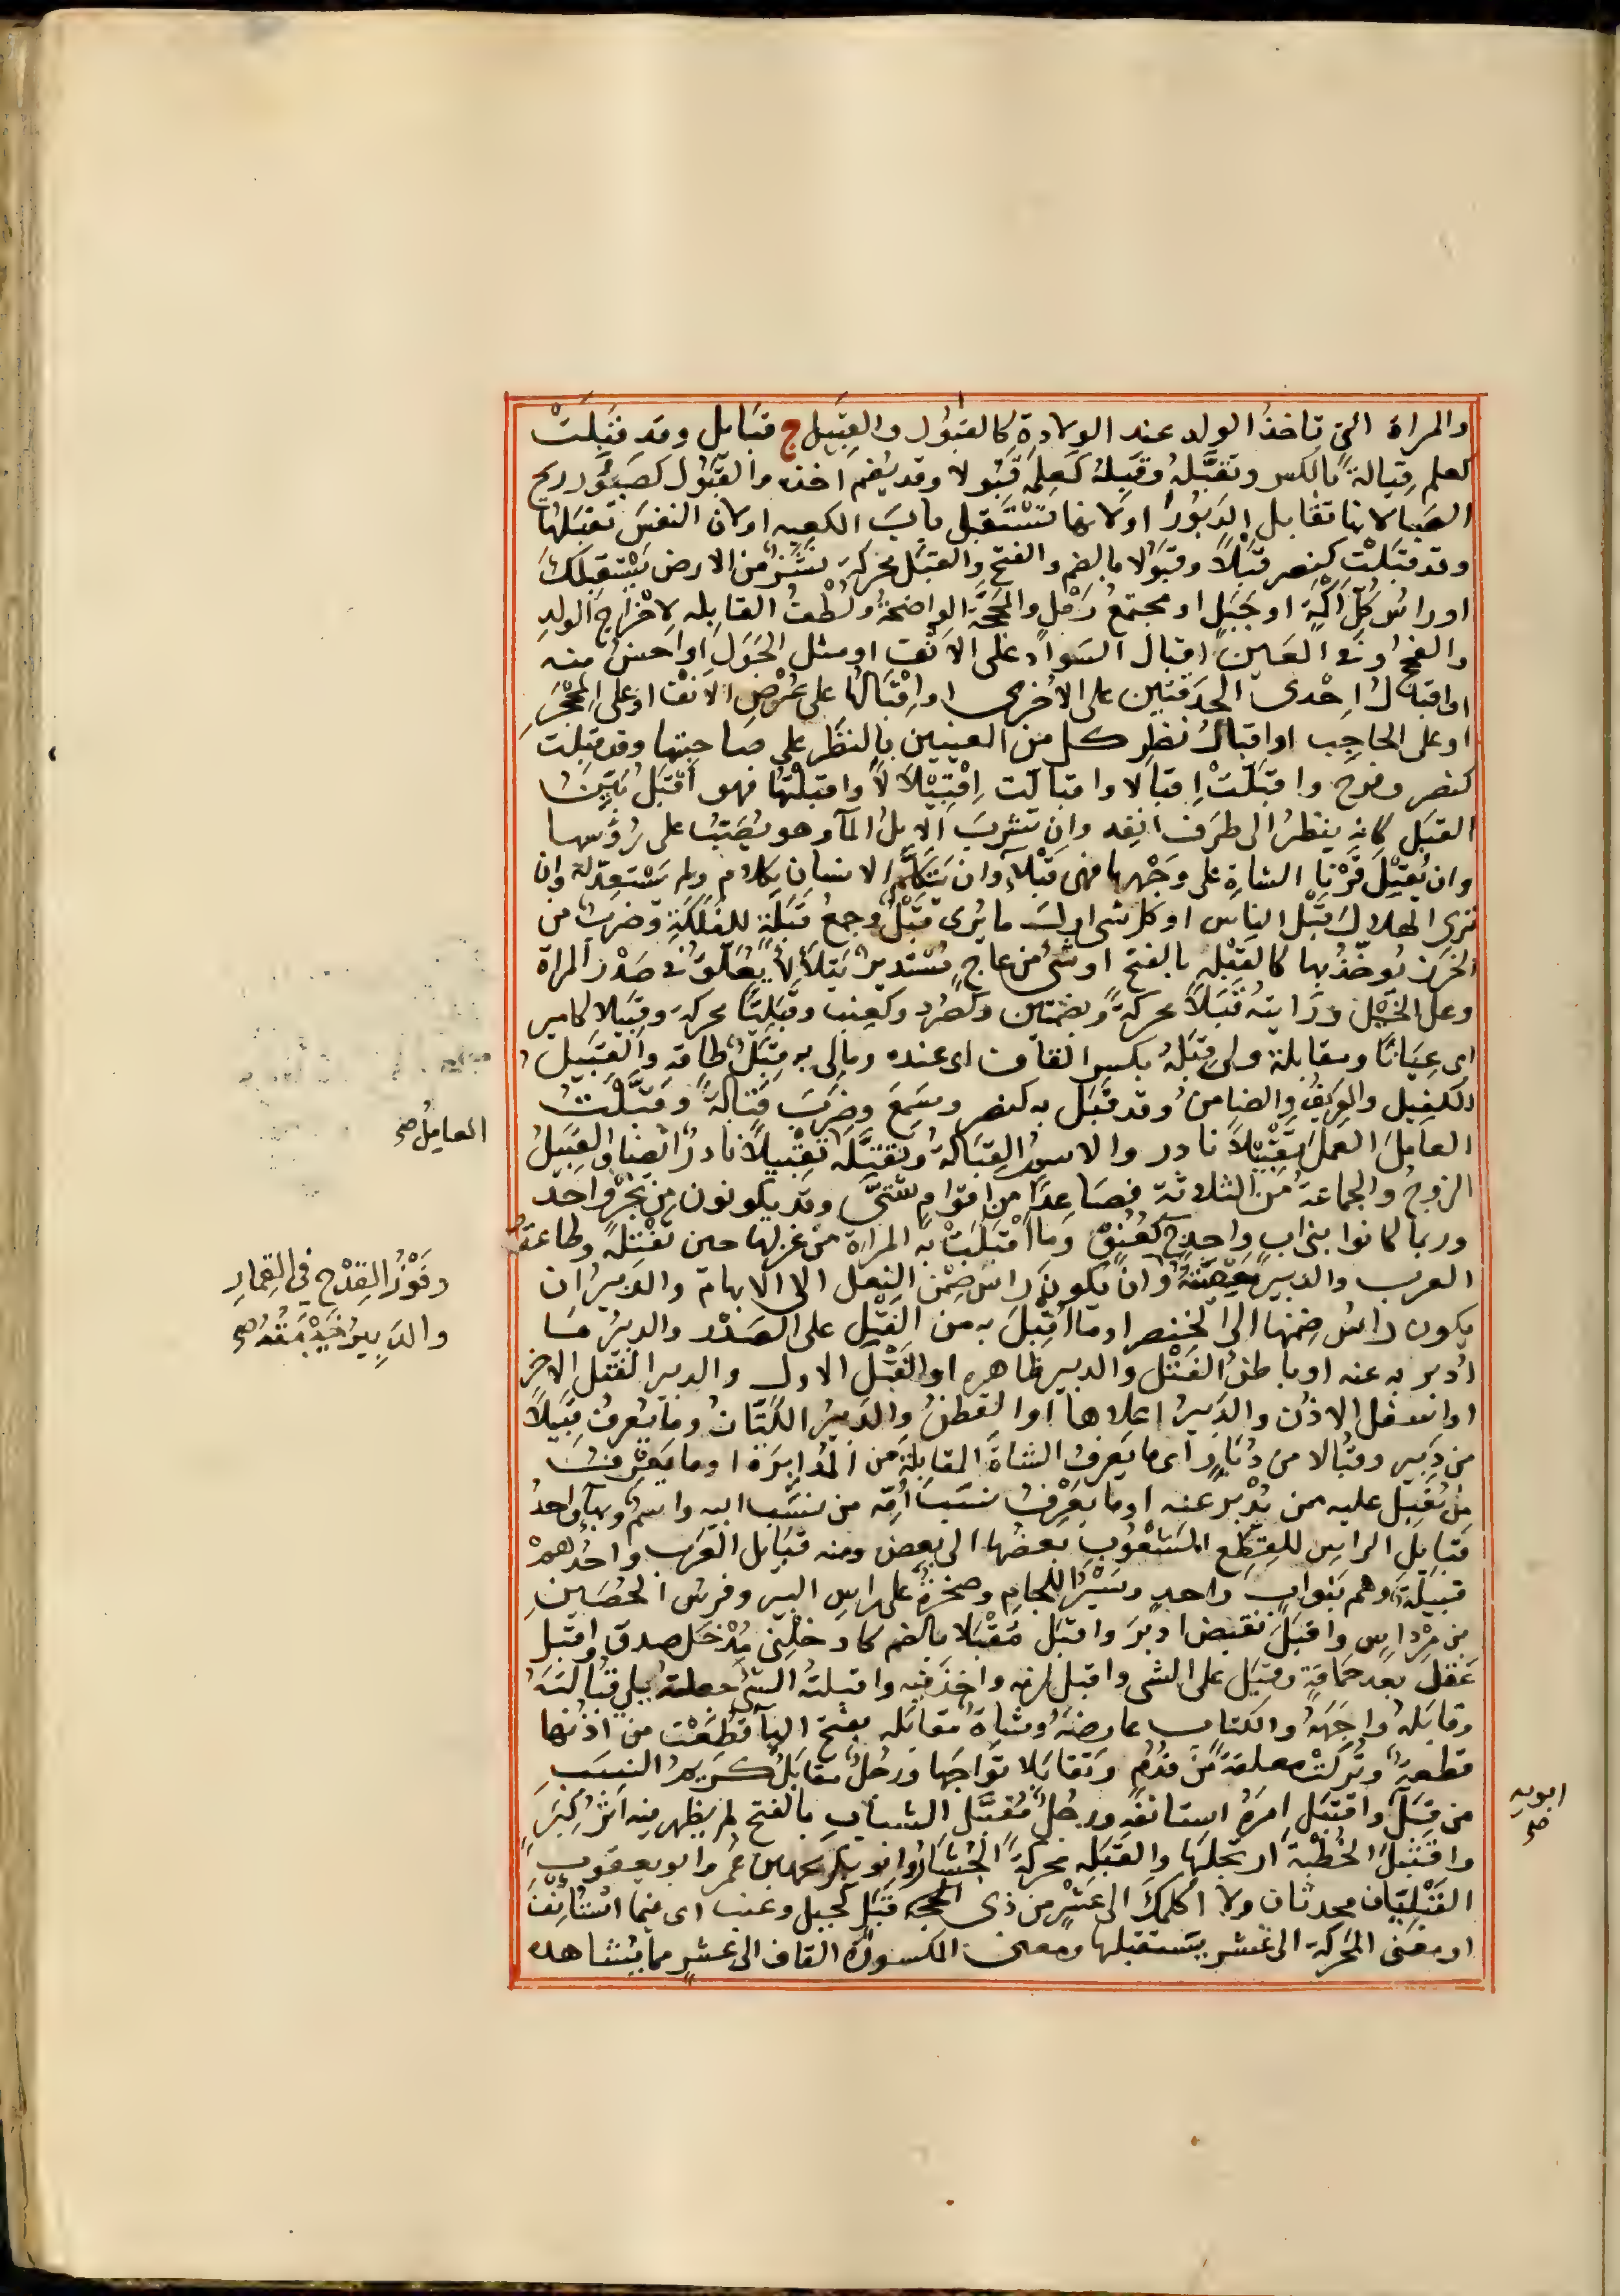 والمراة التى تاخذُ الولد عند الولادةِ كالقَبُولِ والقَبِيلِ ج قبَايل وقد قَبِلَتْ
كعلم قِبالةً بالكسر وتقَبَّلهُ وقَبِلهُ كعَلِمَه قَبُولا وقد يُضم اخذه والقَبُول كصَبُورٍ ريح
الصَبا لانها تقابل الدَبُورَ او لانها تَسْتَقبِل بابَ الكعبه او لان النفسَ تقبَلها
وقد قبَلتْ كنصر قَبْلاً وقُبُولا بالضم والفتح والقبَل محركةً نشَزٌ من الارض يَسْتَقبِلكَ
او راسُ كلّ اكَمَةٍ او جَبَلٍ او مجتمعُ رَمْلٍ والمَحَجَّة الواضحةُ ولُطْفُ القابله لاخْرَاج الولدِ
والفحج او فى العَينِ اقبالُ السَوادِ على الانْفِ او مثل الحَوَل او احسنُ منه
او اقبالُ اِحْدى الحدَقتَين على الاُخْرى او اِقْبَالُها على عُرْضِ الانْف او على المَحْجَرِ
او على الحاجِبِ او اِقبَالُ نظَرِ كل من العينين بالنظَر على صاحبتها وقد قبلت
كنصر وفرح واقبَلَتْ اِقبالا واقبالّت اِقْبِيْلَالاً واقبلْتُها فهو اَقْبَلُ بَيِّنُ
القبَل كانه ينظرُ الى طرَف انفِه وان تشربَ الابلُ المآءَ وهو يُصَبُّ على رُؤُسها
وان يُقْبِلَ قَرْنا الشاةِ على وَجْهها فهى قَبْلَآءُ وان يَتكلَّمَ الانسان بكلامٍ ولم يَسْتَعِدّ له وان
ترى الهلال قَبْل الناس او كل شى اولَ ما يُرى قَبَلٌ وجمعُ قَبَلَةٍ للفَلكَةِ وضربٌ من
الخرَزِ يُوخَّذُ بها كالقَبْلهِ بالفتح او شىٌ من عاجٍ مُسْتَديرٌ يَتلأْلأُ يُعَلَّقُ فى صَدْر المراة
وعلى الخَيْل ورَايتهُ قَبَلاً محركةً وبضمتين وكصُرَدٍ وكعِنب وقَبَلِيّاً محركةً وقَبِيلا كامير
اى عِيَانًا ومقابلةً ولى قِبَلهُ بكسر القاف اى عنده ومالى به قِبَلٌ طاقه والقَبِيل
الكفيل والعَرِيفُ والضامنُ وقد قَبَل به كنصر وسَمِعَ وضرَبَ قَبَالةً وقَبَّلتُ
العامِلَ العملَ تقْبِيلاً نادر والاسمُ القَبَالةُ وتَقبَّلَه تقْبِيلاً نادرٌ ايضا والقَبِيلُ
الزوجُ والجماعةُ من الثلاثة فصَاعِدًا من اقوامٍ شَتّى وقد يكونون من نَجْرٍ واحد
وربما كانوا بنى ابٍ واحدٍ ج كعُنُقٍ وما اَقْبَلَتْ به المراة من غزلها حين تفْتِلهُ وطاعةُ
العرب والدَبيرُ مَعْصِيَتُهُ وان يكون رَاسُ ضِمْنِ النعل الى الابهام والدَبيرُ ان
يكون راسُ ضِمْنها الى الخنصر او ما اُقْبِلَ به من الفَتْل على الصَدْر والدبيرُ مَا
اُدْبِر به عنه او باطنُ الفَتْل والدبير ظاهره او القَبْل الاول والدبير الفَتل الاخر
او اسفل الاذُن والدَبيرُ اعلاها او القطنُ والدَبيرُ الكَتّانُ وما يُعرفُ قَبِيلاً
من دَبِير وقُبالا من دُبارٍ اى ما يَعرفُ الشاة المقابلةَ من المُدابرَة او ما يَعْرفُ
من يُقبِل عليه ممن يُدْبر عنه او ما يَعْرِفُ نسَبَ اُمّه من نسَب ابيه واسمٌ وبهآءٍ واحدُ
قبَايل الراسِ للقِطَع المَشْعُوبِ بعضُها الى بعض ومنه قبَايل العَرب واحدُهمْ
قبيلةٌ وهم بَنو ابٍ واحدٍ وسَيْرُ اللجام وصخرةٌ على راسِ البير وفرسُ الحُصَينِ
بن مِرْداسٍ واقبَلَ نقيض ادبَر واقبَل مُقْبَلا بالضم كادخلْنِى مُدْخَل صدق واقبل
عَقلَ بعد حَماقةٍ وقبَل على الشى واقبل لزمه واخذ فيه واقبلتُه الشئَ جعلته يلى قُبَالتَهُ
وقابَلهُ واجَهَهُ والكتاب عارضهُ وشاةٌ مقابَله بفتح البآ قطعتْ من اذُنها
قطعةٌ وتُركتْ معلقةً من قُدُمٍ وتقَابَلا توَاجَها ورجُلٌ مقَابَلٌ كرَيمُ النسَبِ
من قِبَل واقتبَل اَمرَهُ استانفهَ ورجُلٌ مُقتبَل الشبابِ بالفتح لم يظهر فيه اَثرُ كِبَرٍ
واقتبَلَ الخُطْبَة ارتجلهَا والقَبَله محركةً الجُشَارُ وابو بكر محمد بن عُمر وابو يعقوب
القَبْلِيّان محدثان ولا اكلمكَ الى عَشْرٍ من ذى الحجه قَبَلٍ كجبل وعنب اى فيما اسْتانِفُ
او معنى المحركةِ الى عَشْر يستقبلها ومعنى المكسورة القاف الى عشْرٍ مما يشاهده
العامِلُ صح
وفَوْزُ القِدْحِ فى القِمارِ
والدَبيرُ خَيْبَتُهُ صح
ابويه
صح